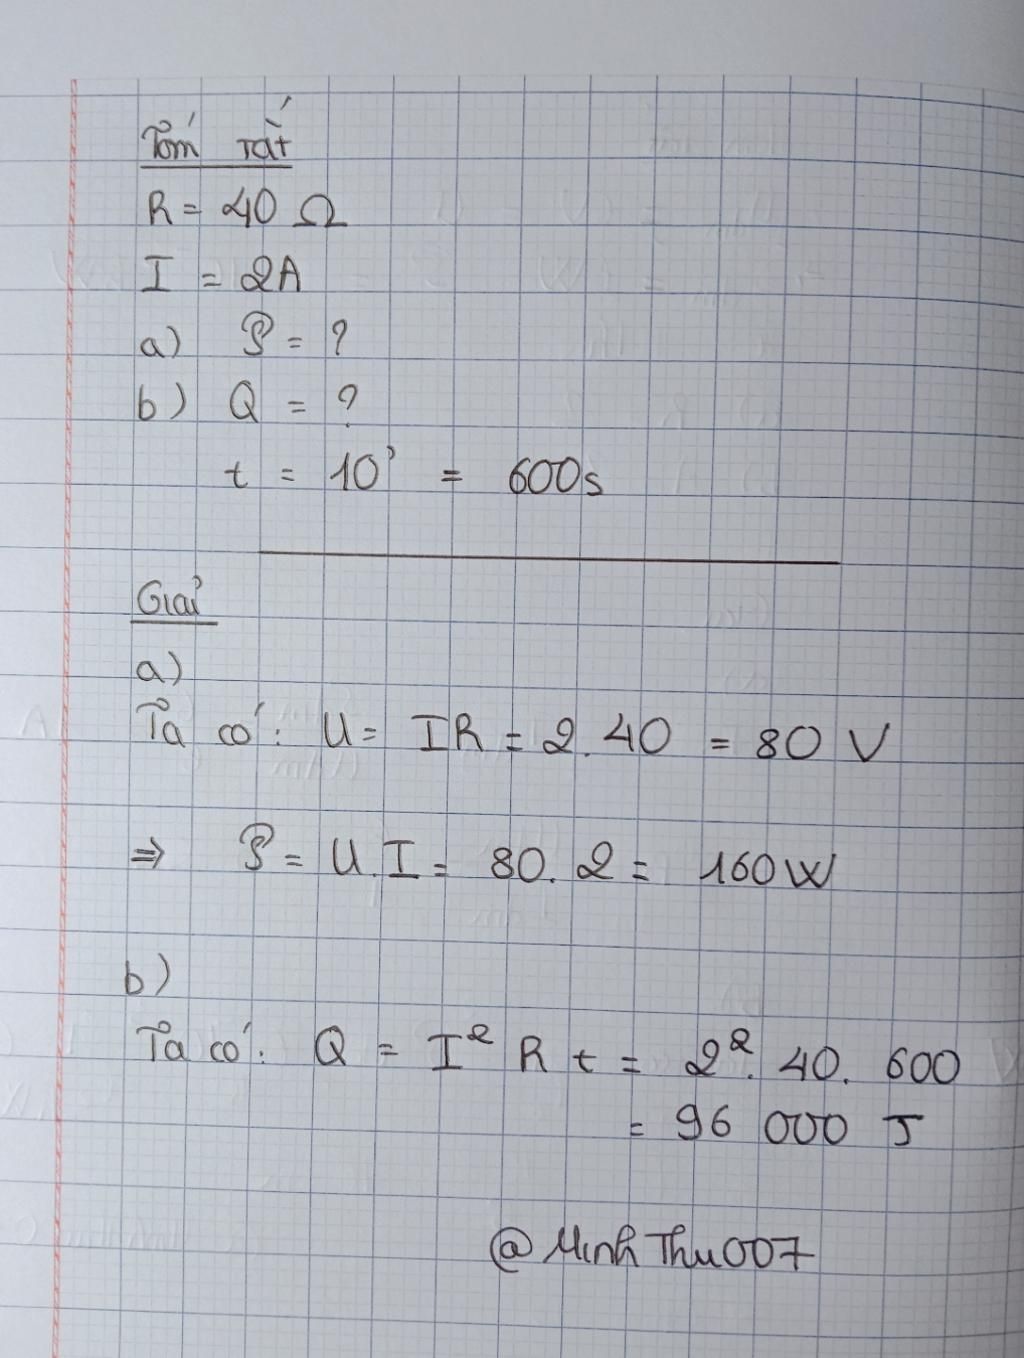 Tóm tắt
R = 40 Ω
I = 2A
a) P = ?
b) Q = ?
t = 10' = 600s
Giải
a)
Ta có: U = IR = 2.40 = 80 V
⇒ P = U.I = 80.2 = 160W
b)
Ta có: Q = I² R t = 2². 40. 600
= 96 000 J
@MinhThu007